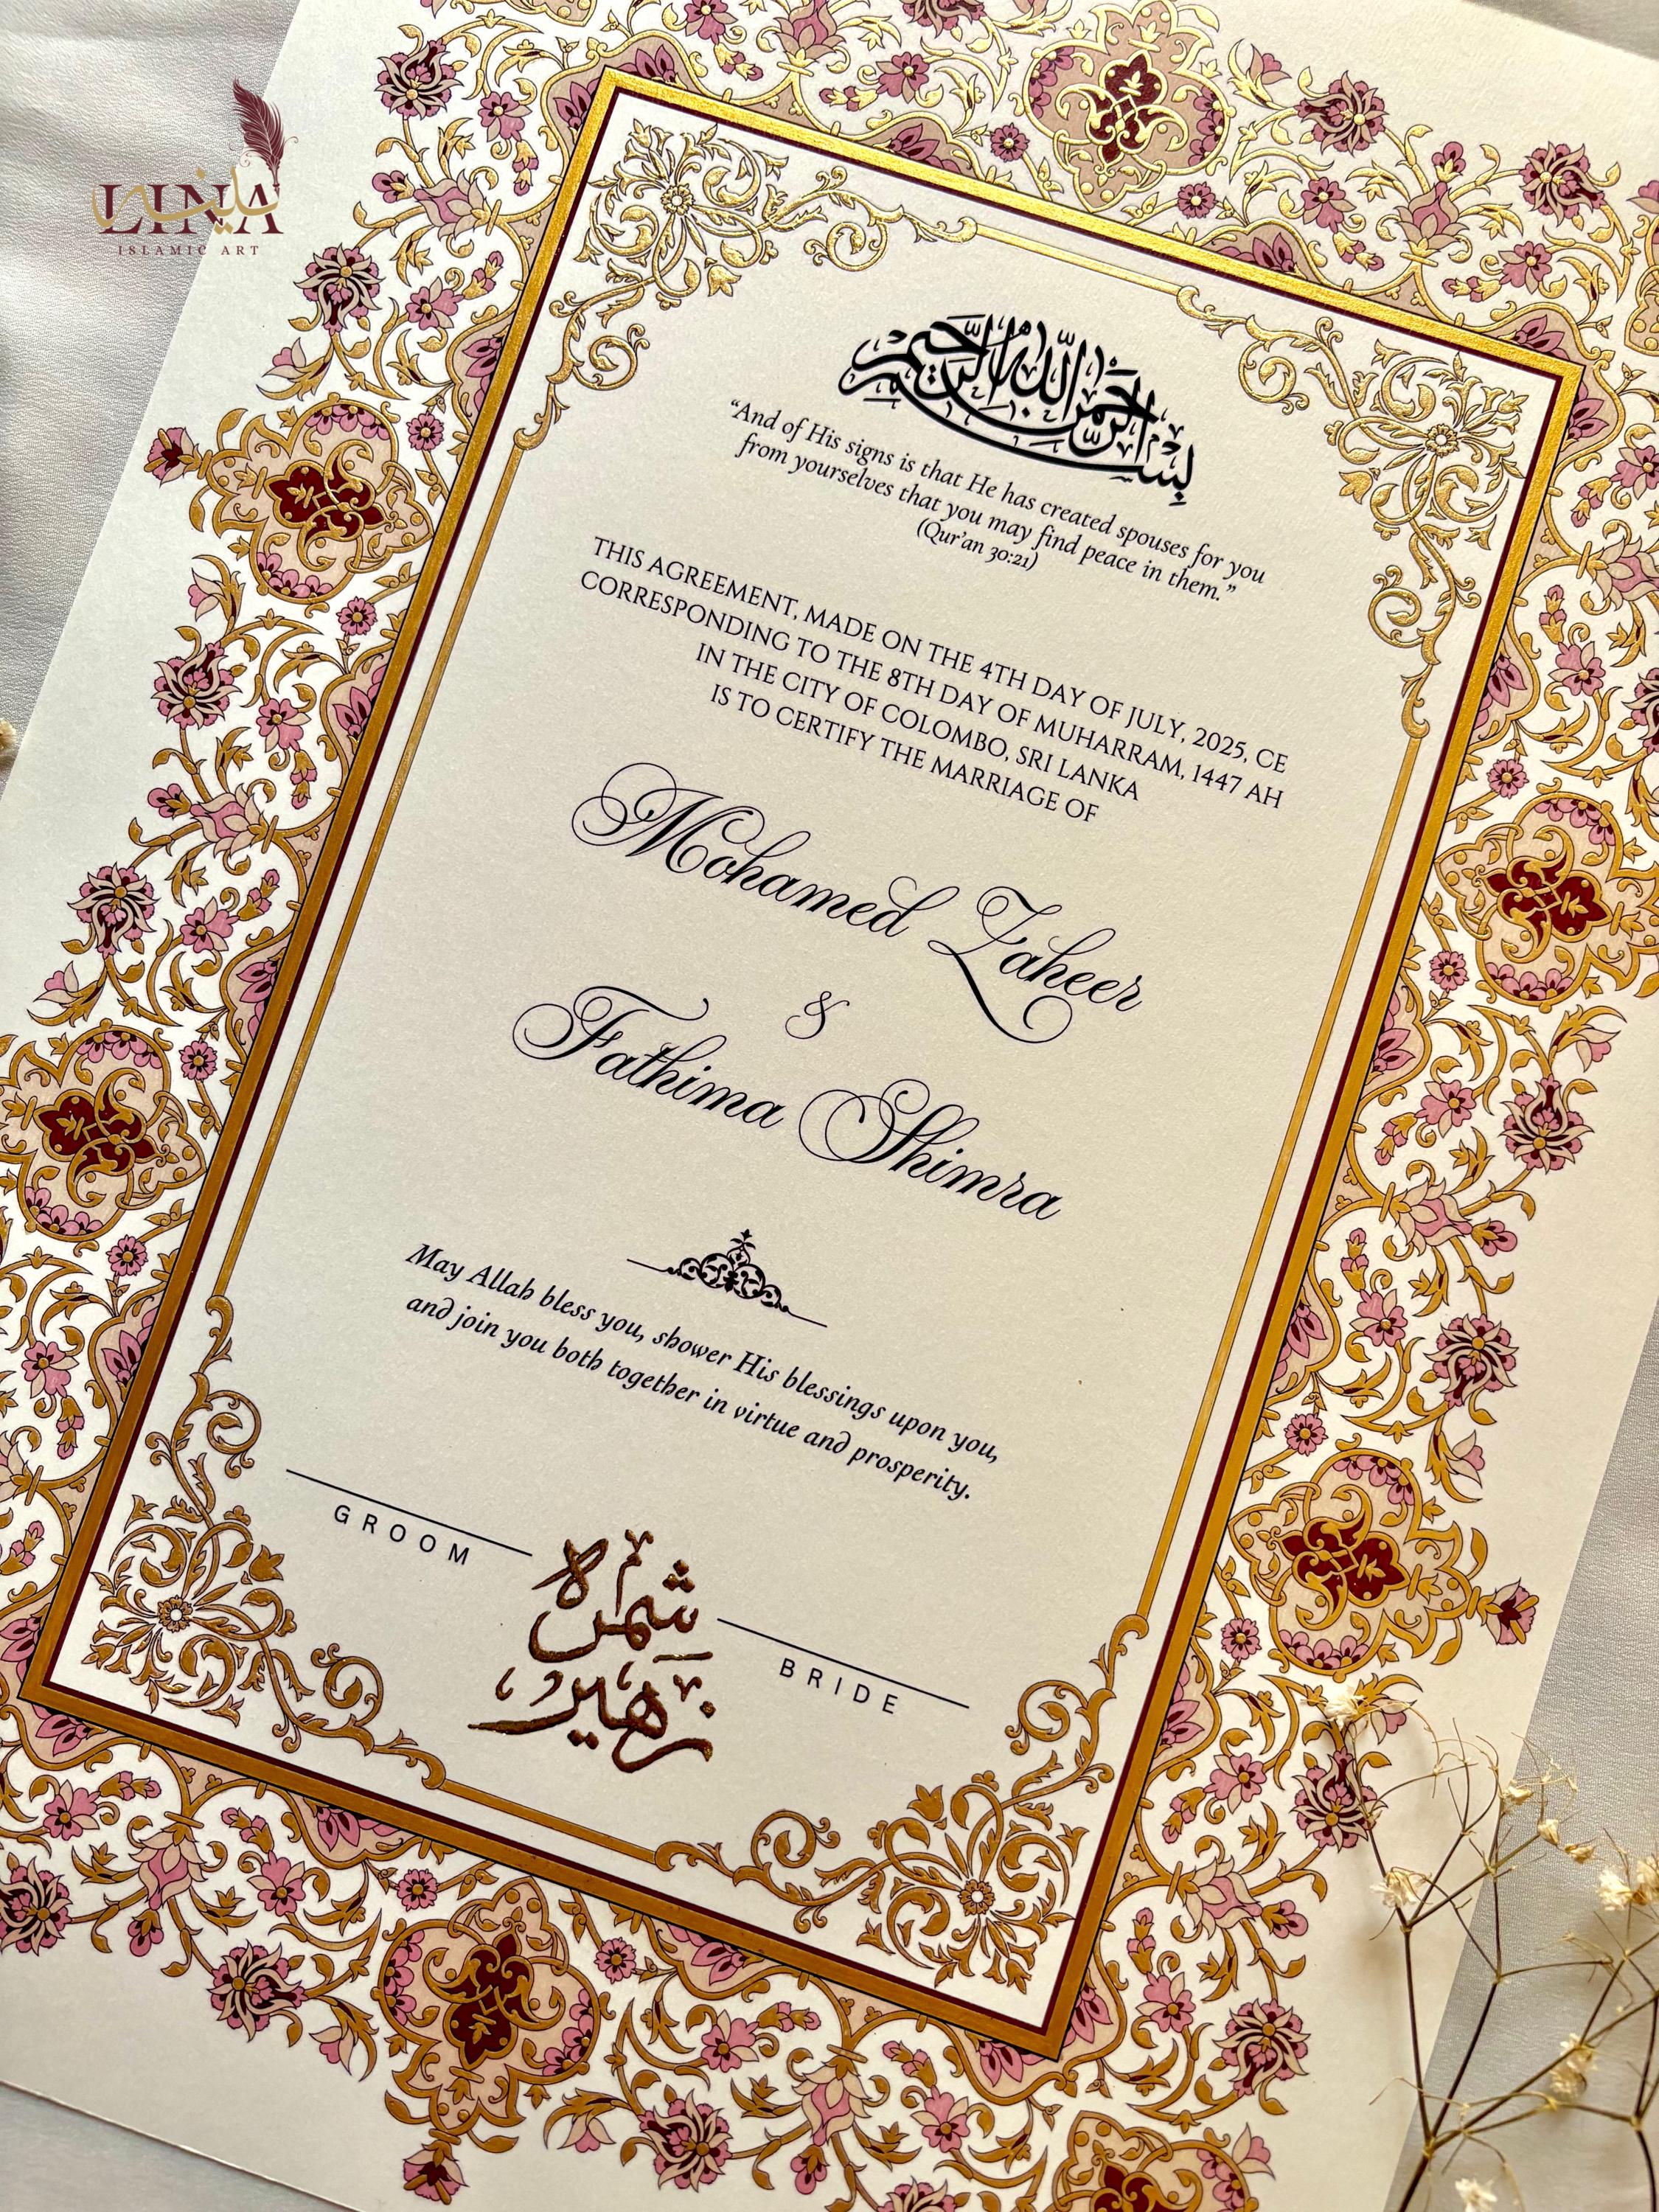 LINA
لينة
ISLAMIC ART
بسم الله الرحمن الرحيم
“And of His signs is that He has created spouses for you
from yourselves that you may find peace in them.”
(Qur’an 30:21)
THIS AGREEMENT, MADE ON THE 4TH DAY OF JULY, 2025, CE
CORRESPONDING TO THE 8TH DAY OF MUHARRAM, 1447 AH
IN THE CITY OF COLOMBO, SRI LANKA
IS TO CERTIFY THE MARRIAGE OF
Mohamed Zaheer
&
Fathima Shimra
May Allah bless you, shower His blessings upon you,
and join you both together in virtue and prosperity.
GROOM
شمره
زهير
BRIDE